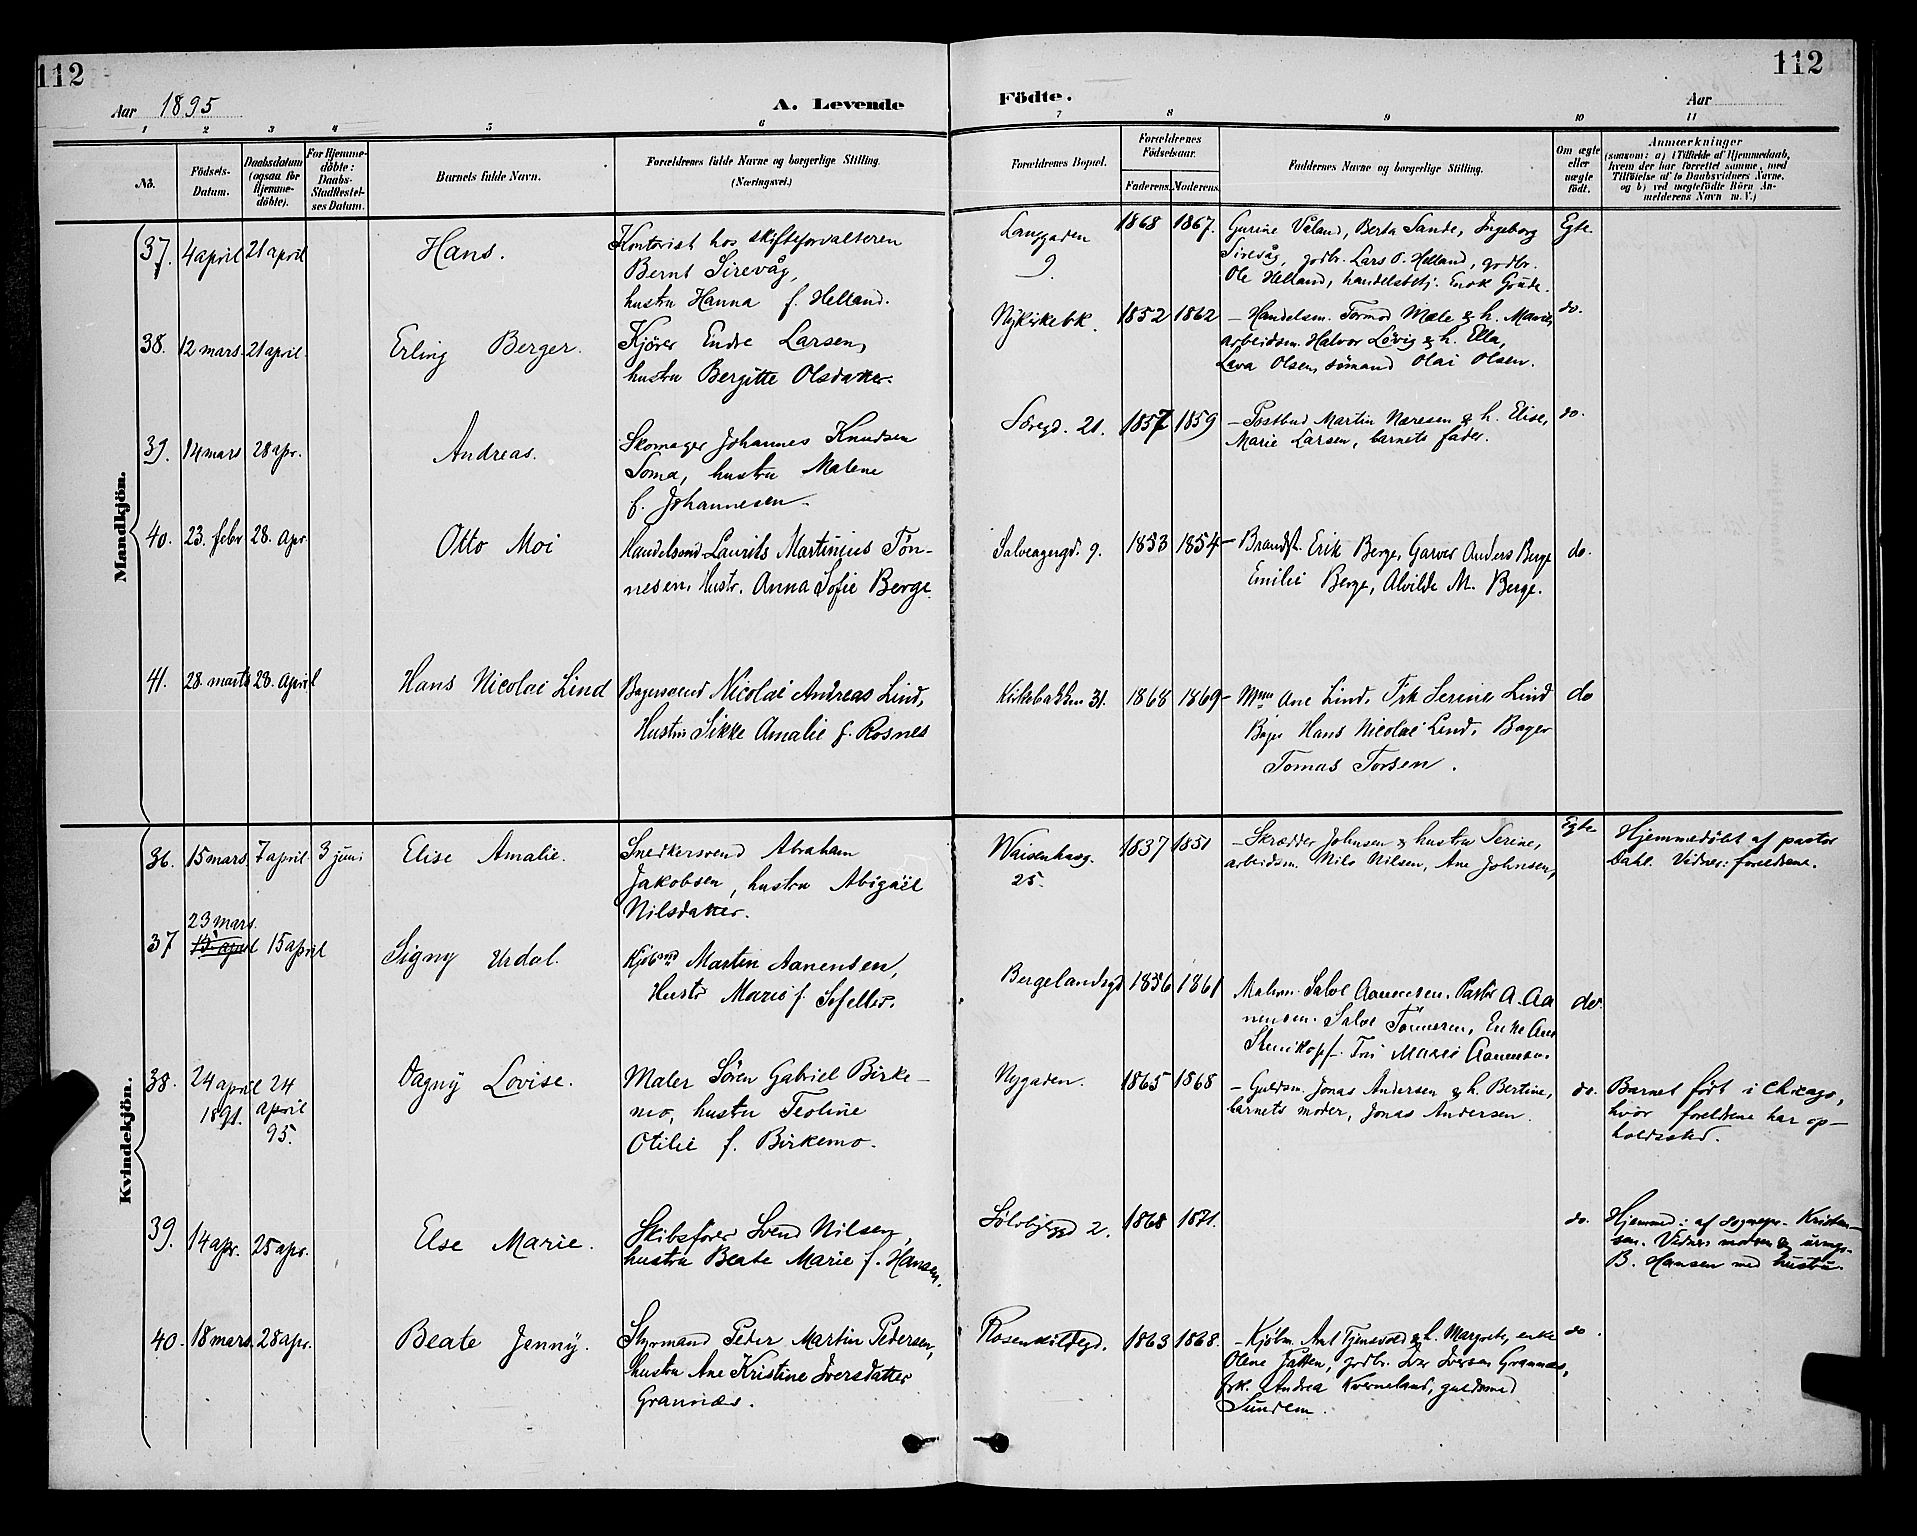 112
112
Aar 1895
A. Levende
Födte.
Aar
1 2 3 4 5 6 7 8 9 10 11
No.
Födsels-
Datum.
Daabsdatum
(ogsaa for
Hjemme-
döbte).
For Hjemme-
döbte:
Daabs-
Stadfæstel-
ses Datum.
Barnets fulde Navn.
Forældrenes fulde Navne og borgerlige Stilling.
(Næringsvei.)
Forældrenes Bopæl.
Forældrenes
Födselsaar.
Faderens.
Moderens.
Faddernes Navne og borgerlige Stilling.
Om ægte
eller
uægte
født.
Anmærkninger
(saasom: a) i Tilfælde af Hjemmedaab,
hvem der har forrettet samme, med
Tilföielse af to Daabsvidners Navne,
og b) ved uægtefödte Börn An-
melderens Navn m. V.)
Mandkjön.
37. 4 april 21 april
Hans.
Kontorist hos skifteforvalteren
Bernt Sirevåg,
hustru Hanna f. Helland.
Langgaden
9.
1868 1867.
Gurine Våland, Berta Sande, Ingeborg
Sirevåg, godbr. Lars O. Helland, godbr.
Ole Helland, handelsbetj. Enok Grude.
Egte.
38. 12 mars. 21 april.
Erling Berger.
Kjører Endre Larsen,
hustru Bergitte Olsdatter.
Nykirkebk.
1852 1862
- Handelsm. Tormod Mæle & h. Marie,
arbeidsm. Halvor Lövig & h. Ella,
Lava Olsen, sömand Olai Olsen.
do.
39. 14 mars 28 apr.
Andreas.
Skomager Johannes Knudsen
Soma, hustru Malene
f. Johannesen.
Søregd. 21.
1857 1859
- Postbud Martin Næresen & h. Elise,
Marie Larsen, barnets fader.
do.
40. 23. febr 28. Apr.
Otto Moi
Handelsmd Laurits Martinius Tön-
nesen, Hustr. Anna Sofie Berge.
Salvagergd. 9.
1853 1854
- Brandst. Erik Berge, Garver Anders Berge
Emilie Berge, Alvilde M. Berge.
do.
41. 28. marts 28. April
Hans Nicolai Lind
Bagersvend Nicolai Andreas Lind,
Hustru Sikke Amalie f. Rosnes
Kirkebakken 31.
1868 1869
- Mme Ane Lind. Frk Serine Lind
Bager Hans Nicolai Lind. Bager
Tomas Torsen.
do
Kvindekjön.
36. 15 mars. 7 april. 3 juni
Elise Amalie.
Snedkersvend Abraham
Jakobsen, hustru Abigael
Nilsdatter.
Waisenhusg.
25.
1837 1851
- Skrædder Johnsen & hustru Serine,
arbeidsm. Nils Nilsen, Ane Johnsen,
Egte
Hjemmedöbt af pastor
Dahl. Vidner: foreldrene.
23 mars.
37 15 april 15 april
Signy Urdal.
Kjøbmd Martin Aanensen,
Hustr Marie f.
Bergelandsgd
1856 1861
Malerm. Salve Aanensen. Pastor A. Aa
nensen. Salve Tönnesen, Enke Ane
Marie Aanensen.
do.
38. 24 april
1891.
24
april
95.
Dagny Lovise.
Maler Sören Gabriel Birke-
mo, hustru Teoline
Otilie f. Birkemo.
Nygaden.
1865 1868
- Guldsm. Jonas Andersen & h. Bertine,
barnets moder, Jonas Andersen.
do.
Barnet født i Chicago,
hvor foreldrene har op-
holdssted.
39. 14 apr. 25 apr.
Else Marie.
Skibsfører Svend Nilsen,
hustru Beate Marie f. Hansen.
Sølvbjerggd 2.
1868 1871.
do.
Hjemmed: af sognepr. Kristen-
sen. Vidner: moderen &
B. Hansen med hustru.
40. 18 mars. 28 apr.
Beate Jenny.
Styrmand Peder Martin Pedersen,
hustru Ane Kristine Iversdatter
Grannæs.
Rosenkildegd.
1863 1868.
- Kjøbm. Ant. Tjensvold & h. Margrete, enke
Olene Jåtten, godbr. Iver Iversen Grannæs,
frk. Andrea Kverneland, guldsmed
Sundem.
do.